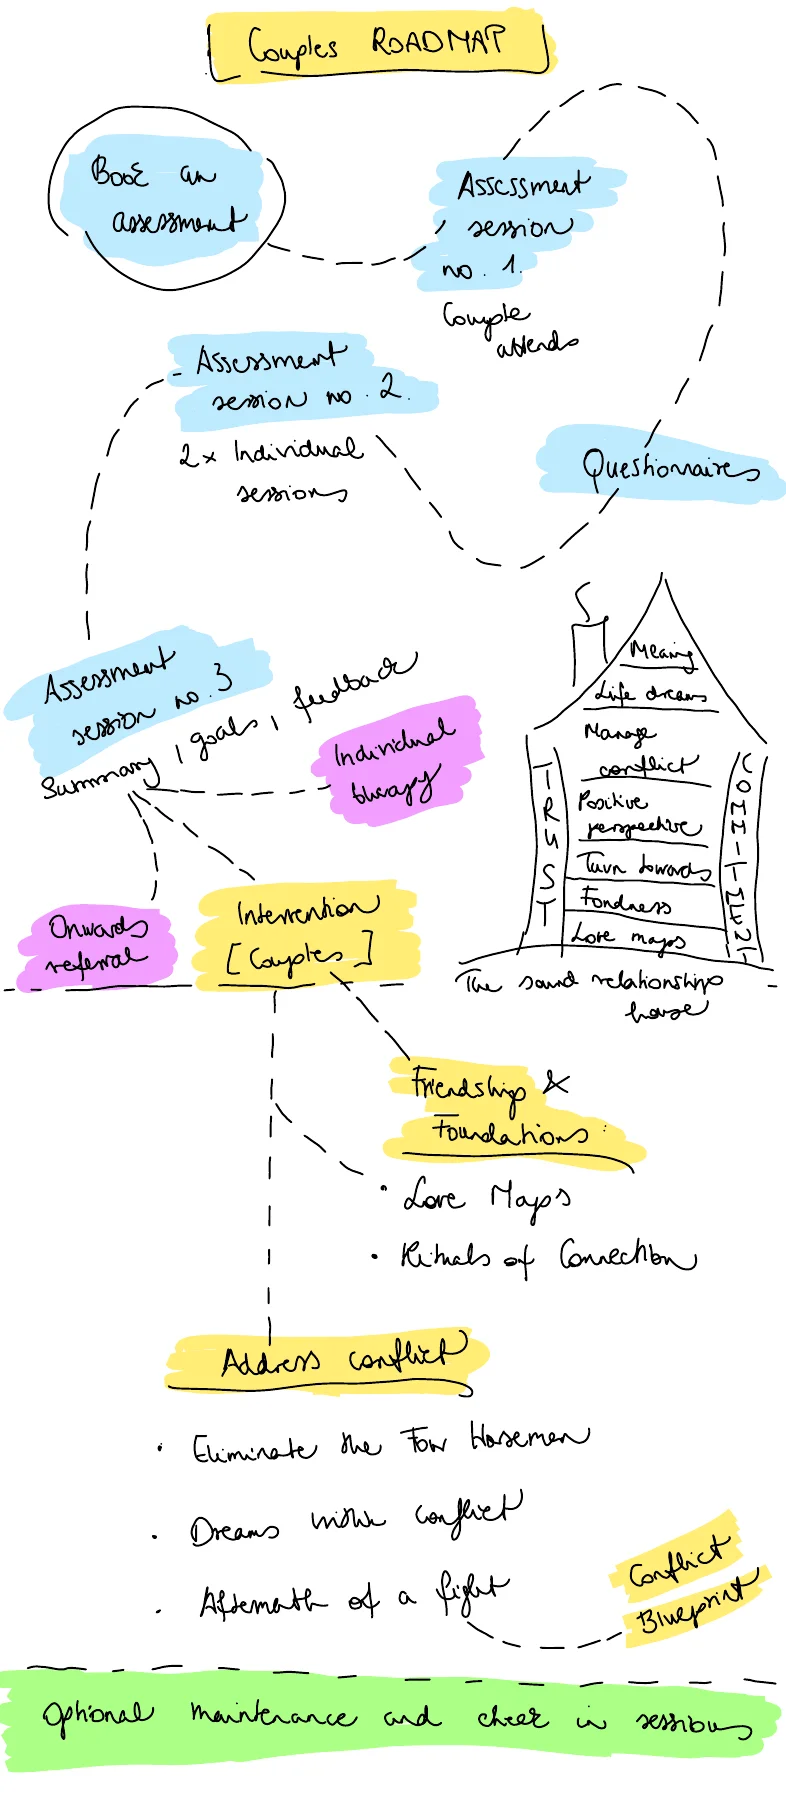 Couples ROADMAP
Book an
assessment
Assessment
session
no. 1.
Couple
attends
Assessment
session no. 2.
2x Individual
sessions
Questionnaires
Assessment
session no. 3
Summary, goals, feedback
Individual
therapy
Onwards
referral
Intervention
[Couples]
Meaning
Life dreams
Manage
conflict
Positive
perspective
Turn towards
Fondness
Love maps
TRUST
COMMITMENT
The sound relationships
house
Friendship &
Foundations
• Love Maps
• Rituals of Connection
Address conflict
• Eliminate the Four Horsemen
• Dreams within conflict
• Aftermath of a fight
Conflict
Blueprint
Optional maintenance and check in sessions